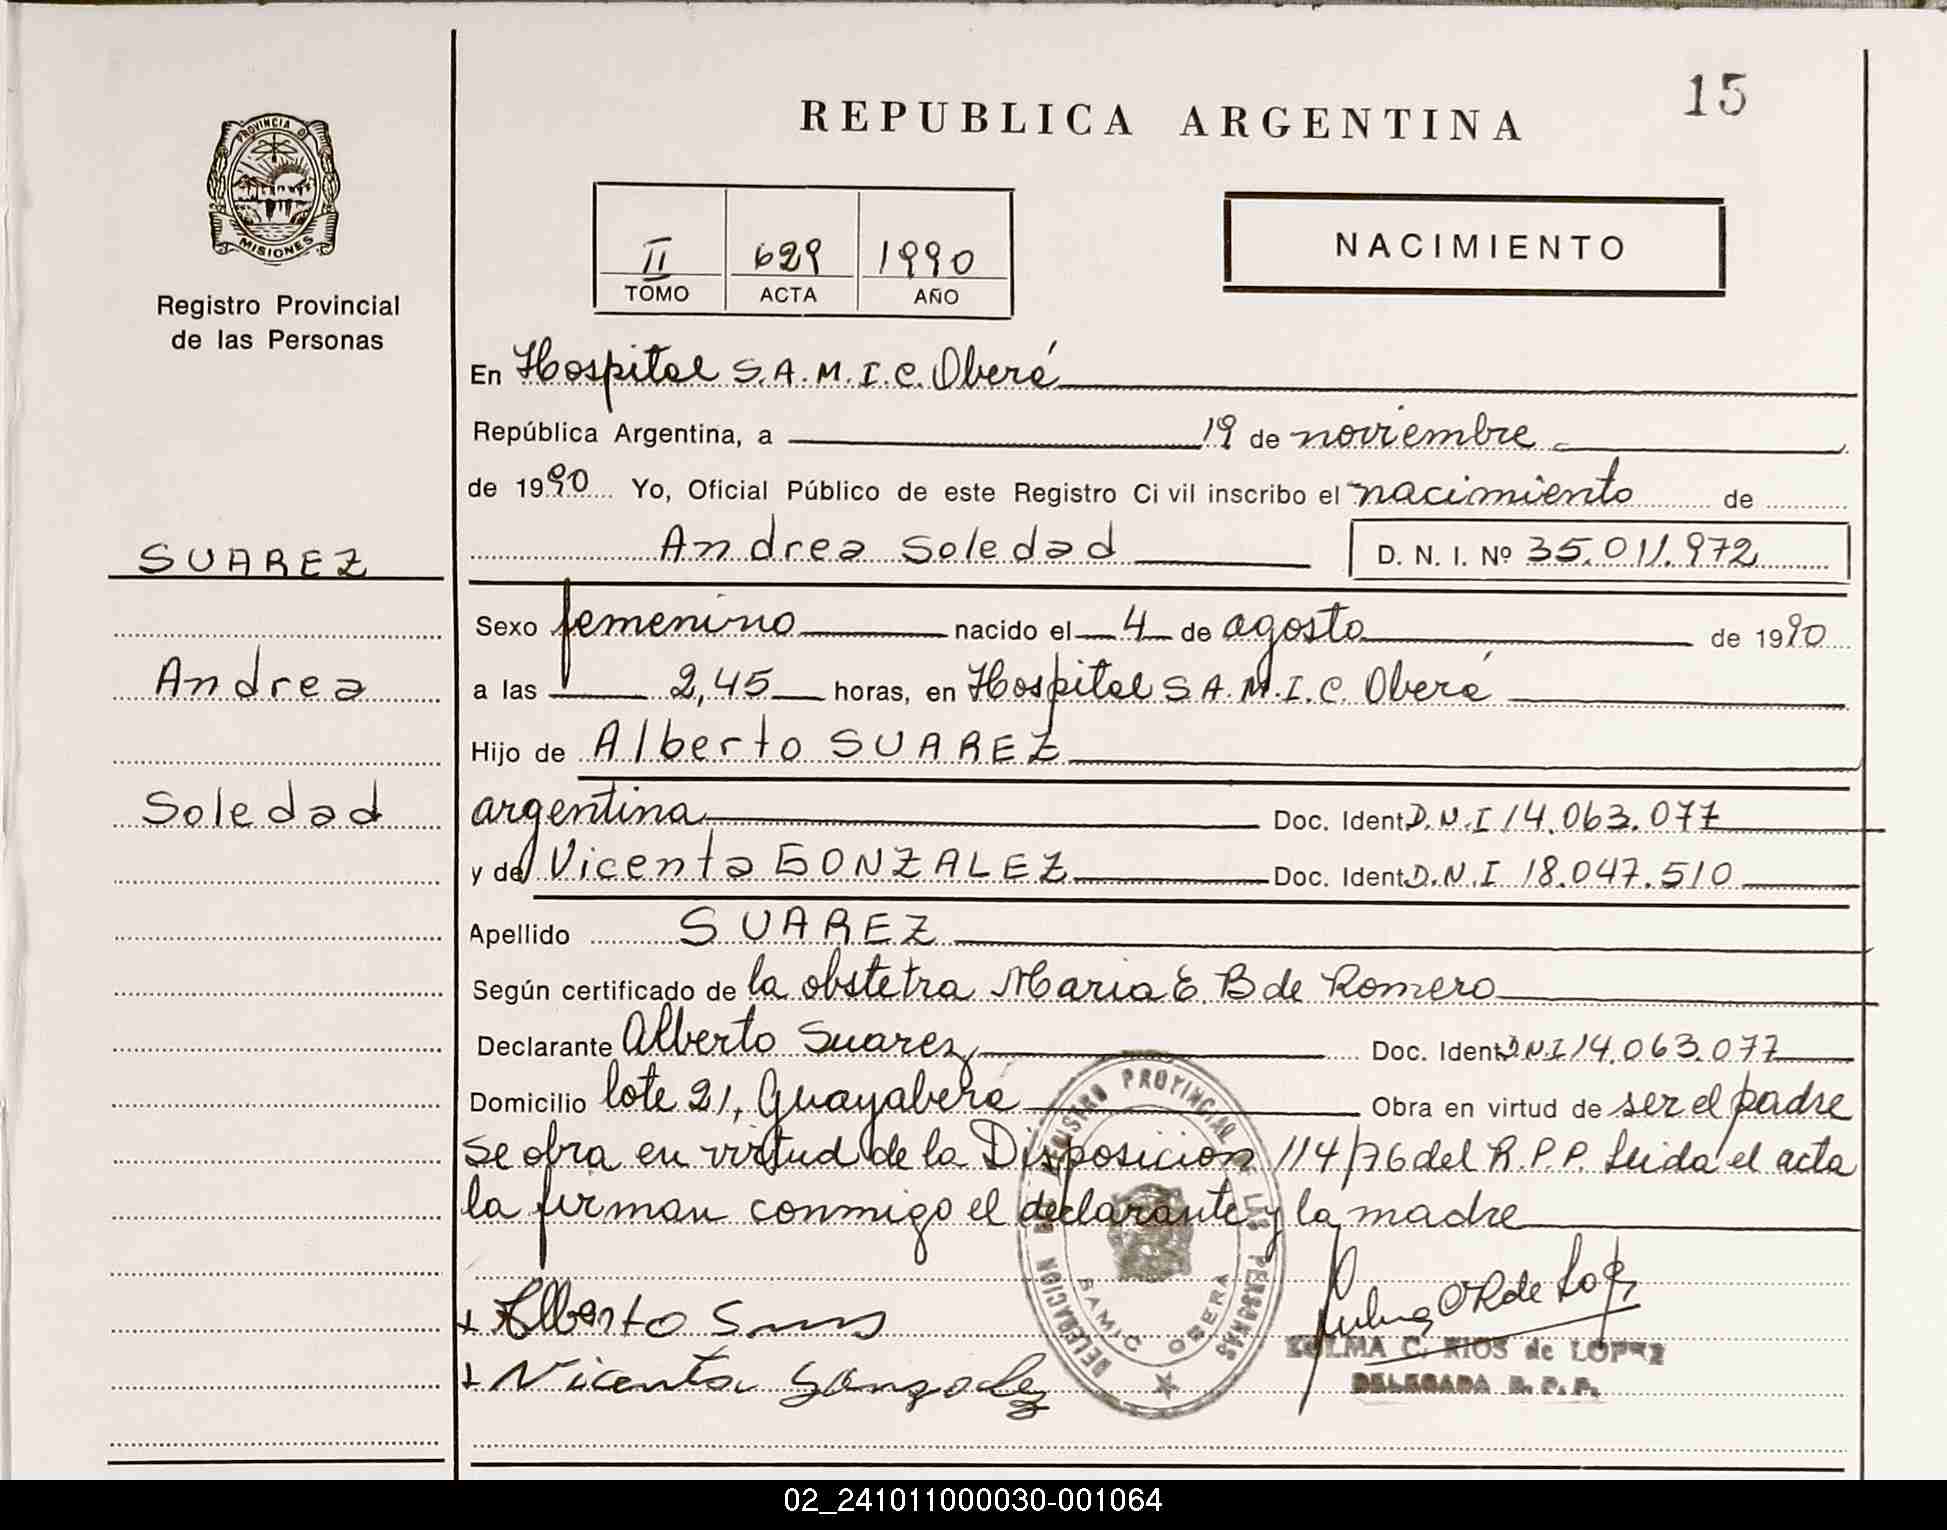 15
REPUBLICA ARGENTINA
PROVINCIA D
MISIONES
Registro Provincial
de las Personas
II 629 1990
TOMO ACTA AÑO
NACIMIENTO
En Hospital S.A.M.I.C. Oberá
República Argentina, a 19 de noviembre
de 1990 Yo, Oficial Público de este Registro Civil inscribo el nacimiento de
SUAREZ
Andrea Soledad D. N. I. Nº 35.011.972
Sexo femenino nacido el 4 de agosto de 1990
Andrea
a las 2,45 horas, en Hospital S A.M.I.C. Oberá
Hijo de Alberto SUAREZ
Soledad
argentina Doc. Ident D.N.I 14.063.077
y de Vicenta GONZALEZ Doc. Ident D.N.I 18.047.510
Apellido SUAREZ
Según certificado de la obstetra Maria E. B de Romero
Declarante Alberto Suarez Doc. Ident DNI 14.063.077
Domicilio lote 21, Guayabera Obra en virtud de ser el padre
se obra en virtud de la Disposicion 114/76 del R.P.P. Leida el acta
la firman conmigo el declarante y la madre
DELEGACION REGISTRO PROVINCIAL DE LAS PERSONAS
SAMIC OBERA
+ Alberto
+ Vicenta Gonzalez
ZULMA C. RIOS de LOPEZ
DELEGADA R. P. P.
02_241011000030-001064